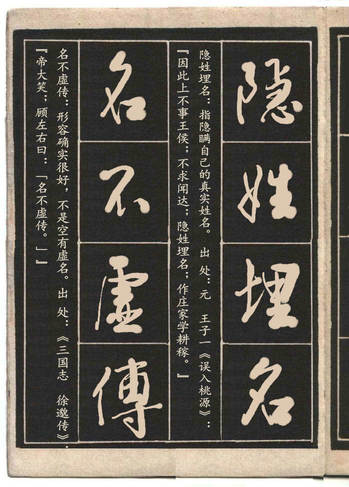 隐姓埋名
隐姓埋名：指隐瞒自己的真实姓名。 出 处：元 王子一《误入桃源》：
『因此上不事王侯；不求闻达；隐姓埋名；作庄家学耕稼。』
名不虚傳
名不虚传：形容确实很好，不是空有虚名。出 处：《三国志 徐邈传》：
『帝大笑；顾左右曰：「名不虚传。」』